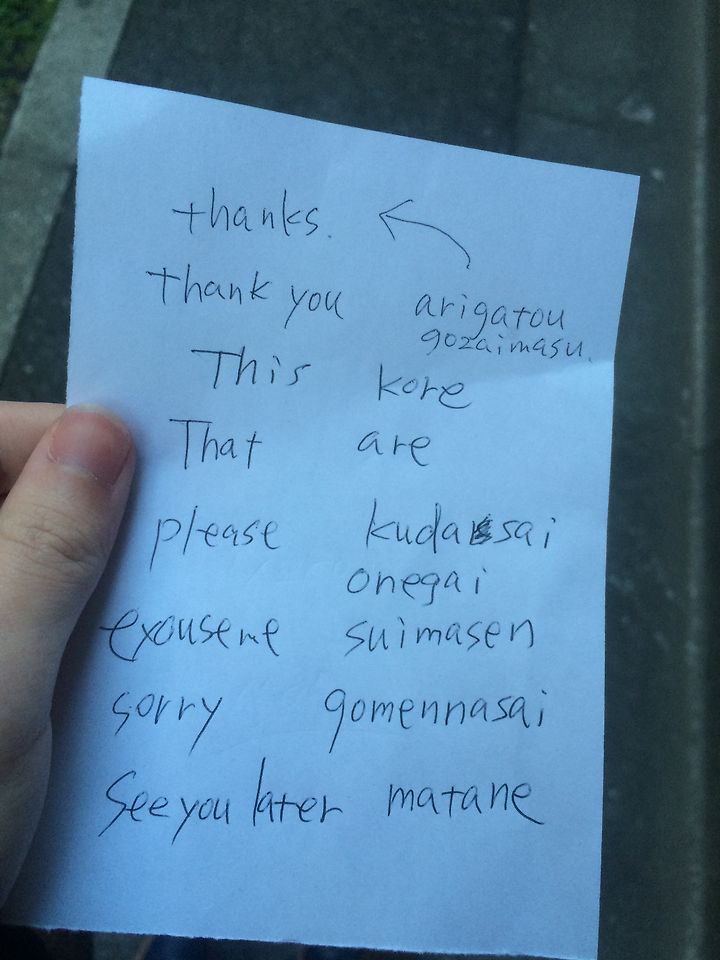 thanks.
thank you arigatou
gozaimasu.
This kore
That are
please kudasai
onegai
exouseme suimasen
sorry gomennasai
See you later matane